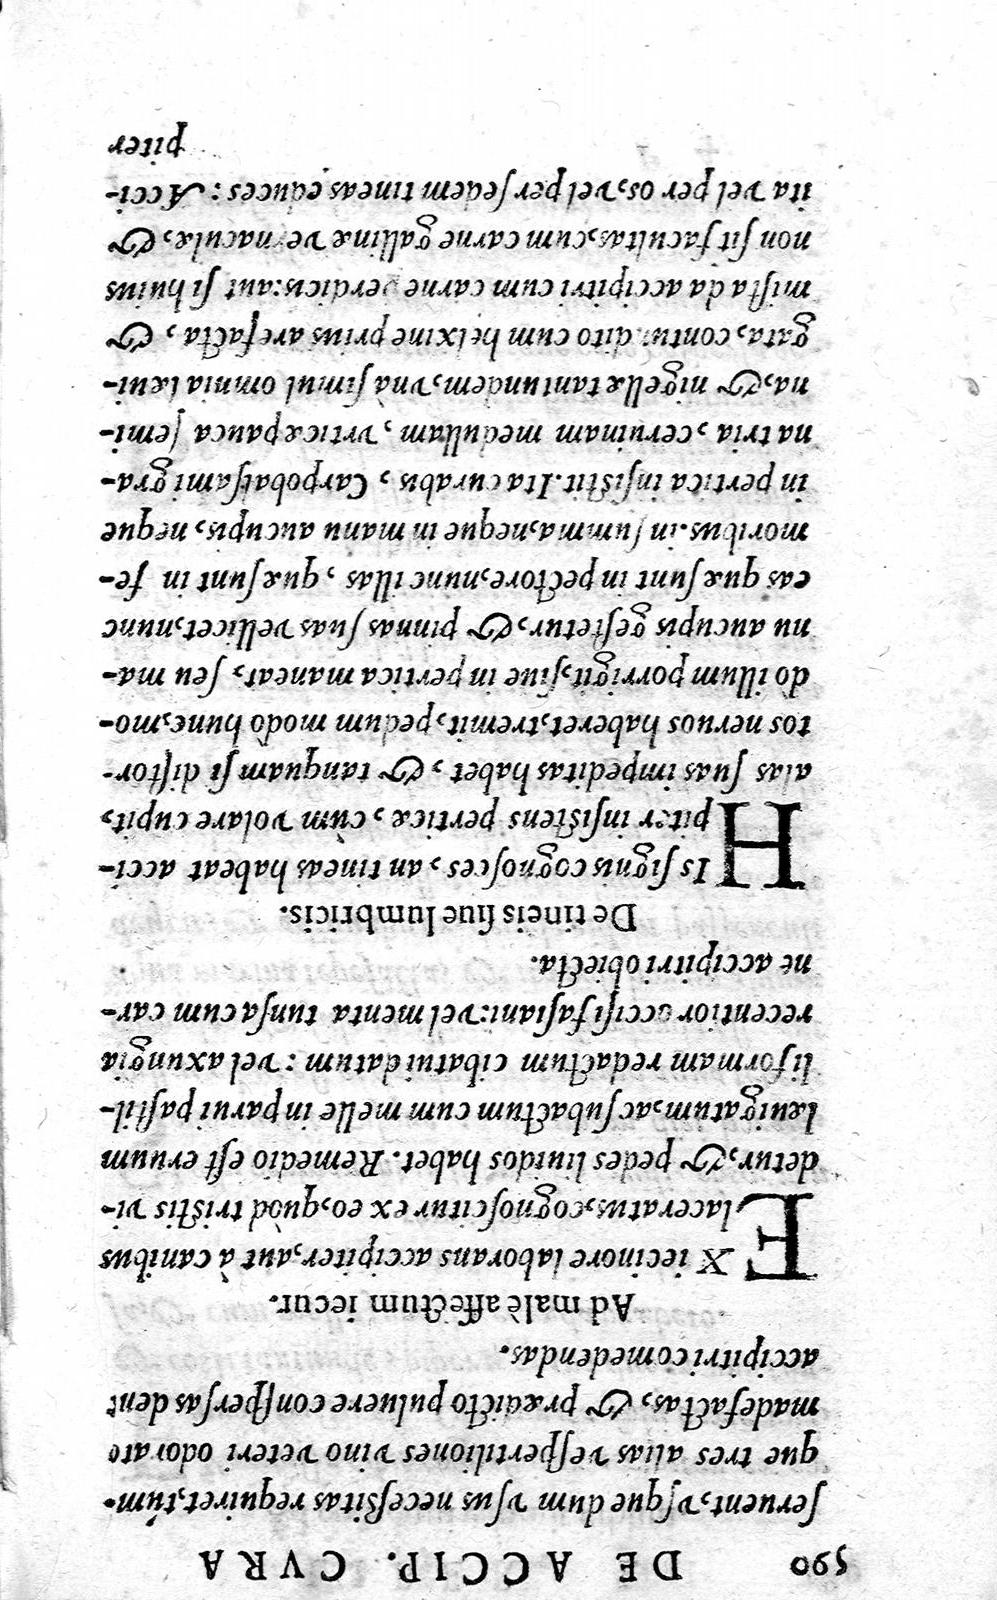 590 DE ACCIP. CVRA
ſeruent, vſque dum vſus neceſsitas requiret, túm-
que tres alias veſpertiliones vino veteri odorato
madefactas, & prædicto puluere conſperſas dent
accipitri comedendas.
Ad malè affectum iecur.
EX iecinore laborans accipiter, aut à canibus
laceratus, cognoſcitur ex eo, quòd triſtis vi-
detur, & pedes liuidos habet. Remedio eſt eruum
læuigatum, ac ſubactum cum melle in parui paſtil-
li formam redactum cibatui datum: vel axungia
recentior occiſi faſiani: vel menta tunſa cum car-
ne accipitri obiecta.
De tineis ſiue lumbricis.
HIs ſignis cognoſces, an tineas habeat acci-
piter inſiſtens perticæ, cùm volare cupit,
alas ſuas impeditas habet, & tanquam ſi diſtor-
tos neruos haberet, tremit, pedum modò hunc, mo-
dò illum porrigit, ſiue in pertica maneat, ſeu ma-
nu aucupis geſtetur, & pinnas ſuas vellicet, nunc
eas quæ ſunt in pectore, nunc illas, quæ ſunt in fe-
moribus. in ſumma, neque in manu aucupis, neque
in pertica inſiſtit. Ita curabis, Carpobalſami gra-
na tria, ceruinam medullam, vrticæ pauca ſemi-
na, & nigellæ tantundem, vnà ſimul omnia læui-
gata, contundito cum helxine prius arefacta, &
miſta da accipitri cum carne perdicis: aut ſi huius
non ſit facultas, cum carne gallinæ vernaculæ, &
ita vel per os, vel per ſedem tineas educes: Acci-
piter